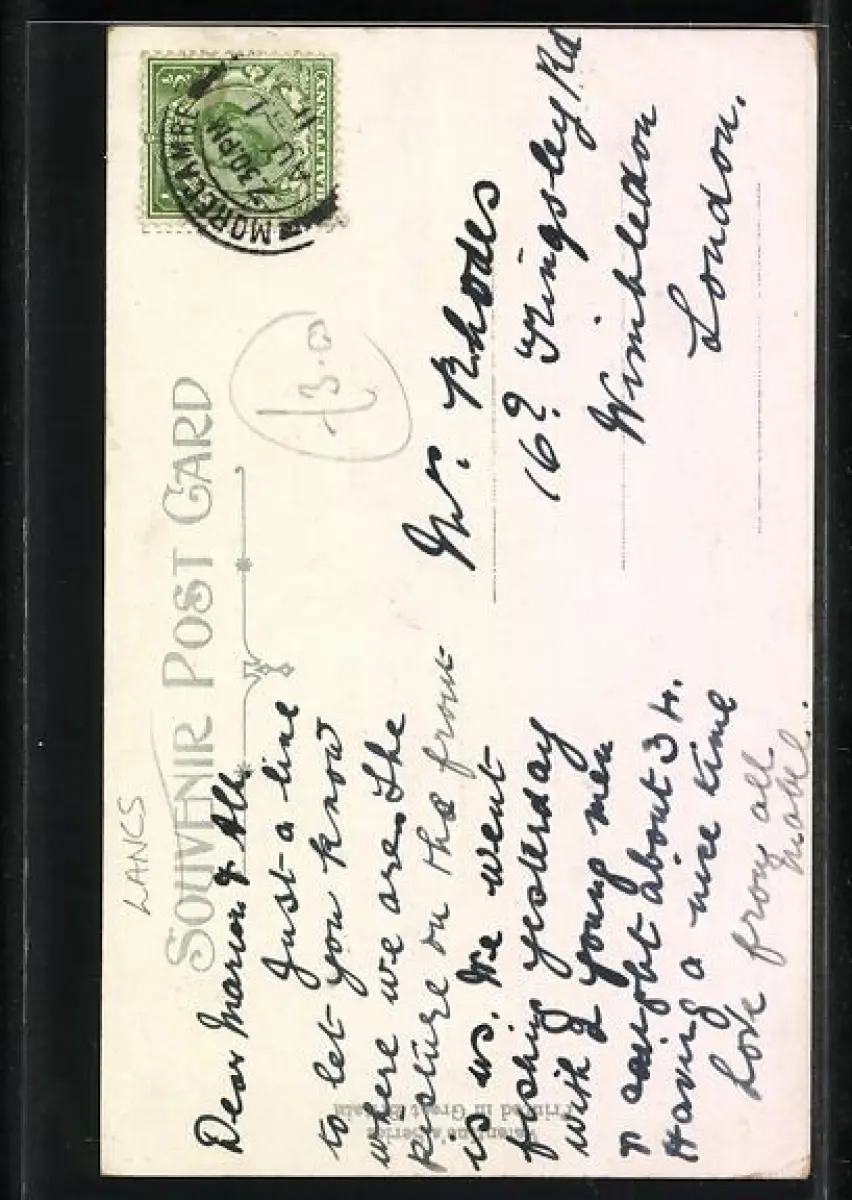 LANCS
SOUVENIR POST CARD
HALFPENNY
MORECAMBE
7 30 PM
AU 1
11
£3.0
Dear Marion & All.
Just a line
to let you know
where we are. The
picture on the front
is us. We went
fishing yesterday
with 2 young men
& caught about 3 lb.
Having a nice time
Love from all
Mabel.
Rhodes
Kingsley Rd
Wimbledon
London.
Valentine's Series
Printed in Great Britain